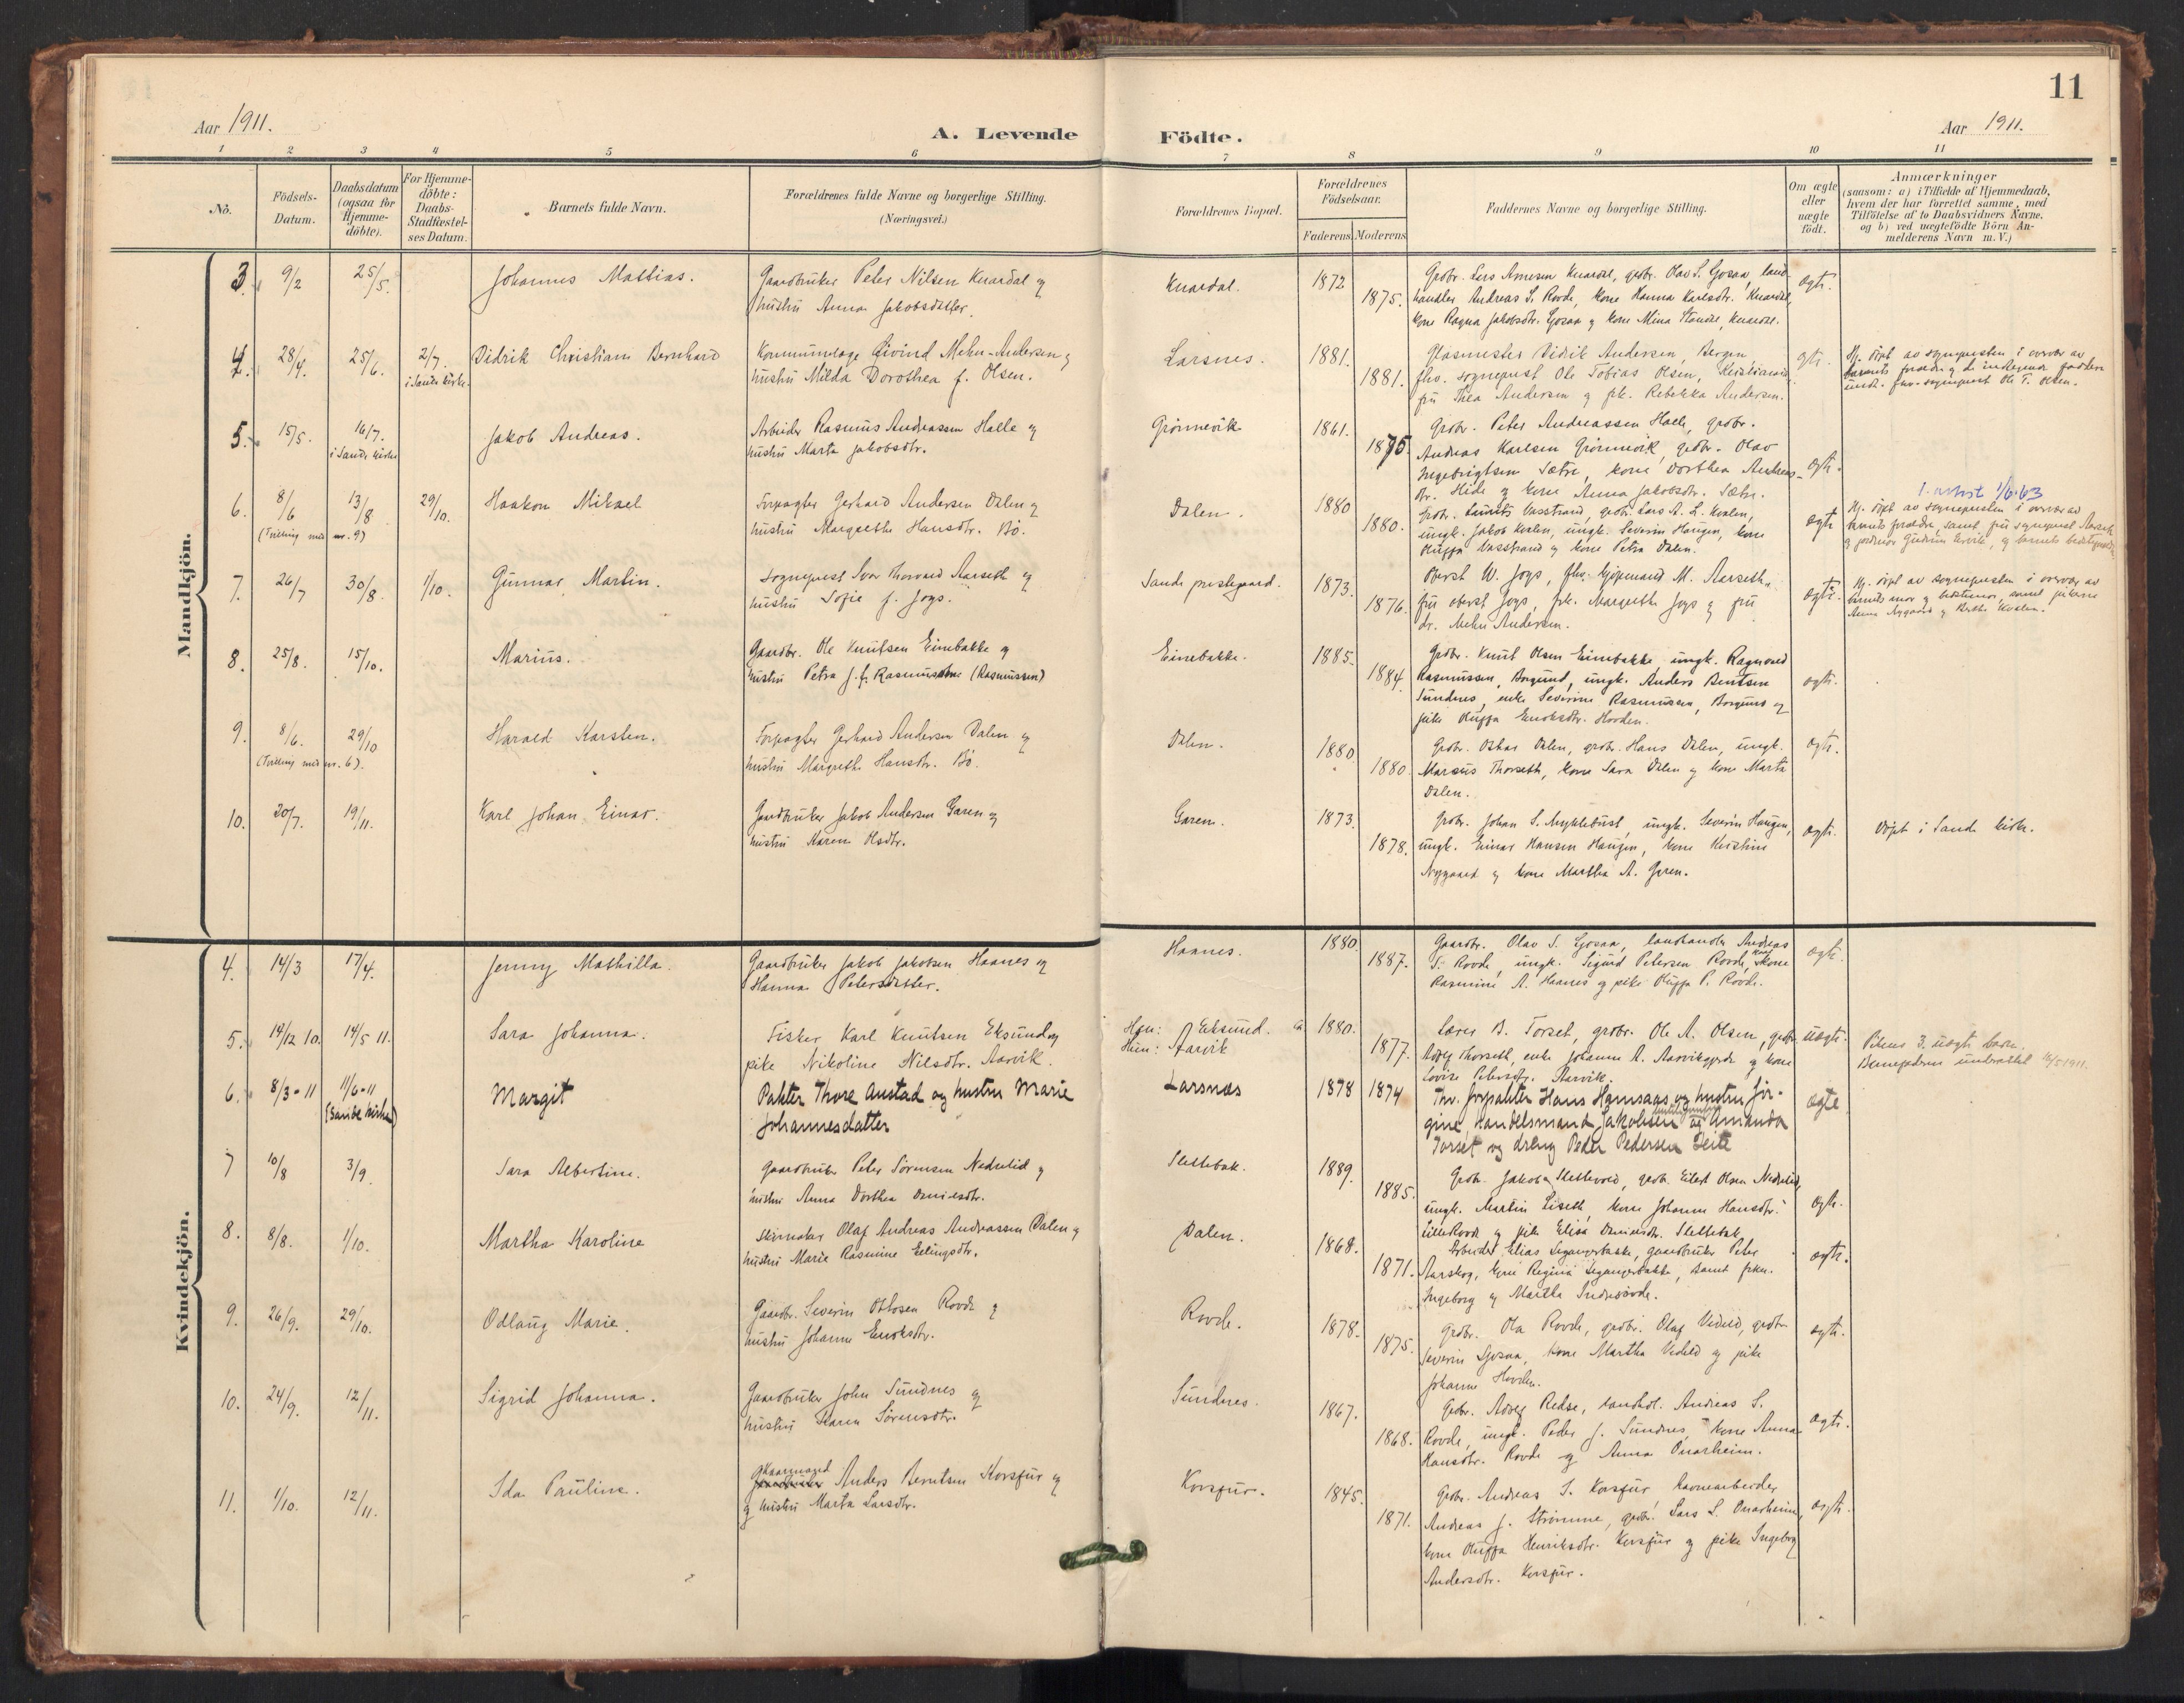 11
Aar 1911.
A. Levende Födte.
Aar 1911.
1 2 3 4 5 6 7 8 9 10 11
No.
Födsels-
Datum.
Daabsdatum
(ogsaa for
Hjemme-
döbte).
For Hjemme-
döbte:
Daabs-
Stadfæstel-
ses Datum.
Barnets fulde Navn.
Forældrenes fulde Navne og borgerlige Stilling.
(Næringsvei.)
Forældrenes Bopæl.
Forældrenes
Födselsaar.
Faderens. Moderens.
Faddernes Navne og borgerlige Stilling.
Om ægte
eller
uægte
födt.
Anmærkninger
(saasom: a) i Tilfælde af Hjemmedaab,
hvem der har forrettet samme, med
Tilföielse af to Daabsvidners Navne,
og b) ved uægtefödte Börn An-
melderens Navn m. V.)
Mandkjön.
3. 9/2 25/5. Johannes Mathias.
Gaardbruker Peter Nilsen Knardal og
hustru Anna Jakobsdatter.
Knardal. 1872 1875.
Grdbr. Lars Arnesen Knardal, grdbr. Olav S. Gjosaa, land-
handler Andreas S. Rovde, kone Hanna Karlsdtr. Knardal,
kone Ragna Jakobsdtr. Gjosaa og kone Mina Standal, Knardal.
ægte.
4. 28/4. 25/6. 2/7. i Sande kirke. Didrik Christian Bernhard
Kommunelæge Eivind Mehn-Andersen og
hustru Milda Dorothea f. Olsen.
Larsnes. 1881. 1881.
Glasmester Didrik Andersen, Bergen,
fhv. sogneprest Ole Tobias Olsen, Kristiania,
fru Thea Andersen og frk. Rebekka Andersen.
ægte.
Hj. döpt av sognepresten i overvær av
barnets forældre og de indtegnede faddere
undt. fhv. sogneprest Ole T. Olsen.
5. 15/5. 16/7. i Sande kirke Jakob Andreas.
Arbeider Rasmus Andreassen Halle og
hustru Marta Jakobsdtr.
Grönnevik 1861. 1875.
Grdbr. Peter Andreassen Halle, grdbr.
Andreas Karlsen Grönnevik, grdbr. Olav
Ingebrigtsen Sætre, kone Dorthea Andreas-
dtr. Hide og kone Anna Jakobsdtr. Sætre.
ægte.
6. 8/6 13/8 29/10. Haakon Mikael
(Tvilling med nr. 9)
Forpagter Gerhard Andersen Dalen og
hustru Margrethe Hansdtr. Bö.
Dalen. 1880 1880.
Grdbr. Laurits Vasstrand, grdbr. Lars A. L. Kvalen,
ungk. Jakob Kvalen, ungk. Severin Haugen, kone
Oluffa Vasstrand og kone Petra Dalen.
ægte
1/6.63
Hj. döpt av sognepresten i overvær av
barnets forældre, samt fru sogneprest Aarseth
og jordmor Gudrun Ervik, og barnets bedstemor.
7. 26/7 30/8. 1/10. Gunnar Martin.
Sogneprest Ivar Thorvard Aarseth og
hustru Sofie f. Jogs.
Sande prestegaard. 1873. 1876.
Oberst W. Jogs, fhv. M. Aarseth,
fru oberst Jogs, frk. Margrethe Jogs og fru
dr. Mehn Andersen.
ægte.
Hj. döpt av sognepresten i overvær av
barnets mor og bedstemor, samt pikerne
Anna Nygaard og Berthe Kvalen.
8. 25/8. 15/10. Marius.
Gaardbr. Ole Knutsen Einebakke og
hustru Petra J. f. Rasmusdtr. (Rasmussen)
Einebakke. 1885. 1884.
Grdbr. Knut Olsen Einebakke, ungk. Ragnvald
Rasmussen, Borgund, ungk. Anders Bentsen
Sundnes, enke Severine Rasmussen, Borgund og
pike Oluffa Enoksdtr. Hovden.
ægte.
9. 8/6. 29/10 Harald Karsten.
(Tvilling med nr. 6).
Forpagter Gerhard Andersen Dalen og
hustru Margrethe Hansdtr. Bö.
Dalen. 1880. 1880.
Grdbr. Oskar Dalen, grdbr. Hans Dalen, ungk.
Marius Thorseth, kone Sara Dalen og kone Marta
Dalen.
ægte.
10. 20/7. 19/11. Karl Johan Einar.
Gaardbruker Jakob Andersen Garen og
hustru Karen Olsdtr.
Garen. 1873. 1878.
Grdbr. Johan S. Myklebust, ungk. Severin Haugen,
ungk. Einar Hansen Haugen, kone Kristine
Nygaard og kone Martha A. Garen.
ægte.
Döpt i Sande kirke.
Kvindekjön.
4. 14/3 17/4. Jenny Mathilla.
Gaardbruker Jakob Jakobsen Haanes og
Hanna Petersdatter.
Haanes. 1880. 1887.
Gaardbr. Olav S. Gjosaa, landhandler Andreas
S. Rovde, ungk. Sigurd Petersen Rovde, kone
Rasmine A. Haanes og pike Oluffa P. Rovde.
ægte.
5. 14/12 10. 14/5 11. Sara Johanna.
Fisker Karl Knutsen Eksund og
pike Nikoline Nilsdtr. Aarvik.
Han: Eksund.
Hun: Aarvik
1880. 1877.
Lærer B. Torset, grdbr. Ole A. Olsen, grdbr.
Adolf Thorseth, enke Johanne A. Aarvikgjerde og kone
Lovise Petersdtr. Aarvik.
uægte.
Pikens 3. uægte barn.
Barnefaderen underrettet 16/5 1911.
6. 8/3-11 11/6-11 (Sande kirke) Margit
Pakter Thore Anstad og hustru Marie
Johannesdatter
Larsnæs 1878 1874
Fhv. forpakter Hans Hamsaas og hustru Jör-
gine, Handelsmand Jakobsen og Amanda
Torset og dreng Peder Pedersen Leite
ægte
7 10/8 3/9. Sara Albertine.
Gaardbruker Peter Sörensen Nedrelid og
hustru Anna Dorthea Danielsdtr.
Slettebak. 1889. 1885.
Grdb. Jakob Slettevold, grdb. Eilert Olsen Nedrelid,
ungk. Martin Liseth, kone Johanne Hansdtr.
Lillerovde og pike Elisa Danielsdtr. Slettebak.
ægte.
8. 8/8. 1/10. Martha Karoline
Skomaker Olaf Andreas Andreassen Dalen og
hustru Marie Rasmine Erlingsdtr.
Dalen. 1868. 1871.
Arbeider Elias Legangerbakke, gaardbruker Peter
Aarskog, kone Regina Legangerbakke, samt frkn.
Ingeborg og Martha Indresövde.
ægte.
9. 26/9. 29/10. Odlaug Marie.
Gaardbr. Severin Ottosen Rovde og
hustru Johanne Enoksdtr.
Rovde. 1878. 1875.
Grdbr. Ola Rovde, grdbr. Olaf Vedeld, grdbr.
Severin Gjosaa, kone Martha Vedeld og pike
Johanne Hovden.
ægte.
10. 24/9. 12/11. Sigrid Johanna.
Gaardbruker John Sundnes og
hustru Karen Sörensdtr.
Sundnes. 1867. 1868.
Grdbr. Adolf Redse, landhdl. Andreas S.
Rovde, ungk. Peder J. Sundnes, kone Anna
Hansdtr. Rovde og Anna Onarheim.
ægte.
11. 1/10. 12/11. Ida Pauline.
Kaarmand Anders Berntsen Korsfur og
og hustru Marta Larsdtr.
Korsfur. 1845. 1871.
Grdbr. Andreas S. Korsfur havnearbeider
Andreas J. Strömme, grdbr. Lars L. Onarheim,
kone Oluffa Henriksdtr. Korsfur og pike Ingeborg
Andersdtr. Korsfur.
ægte.